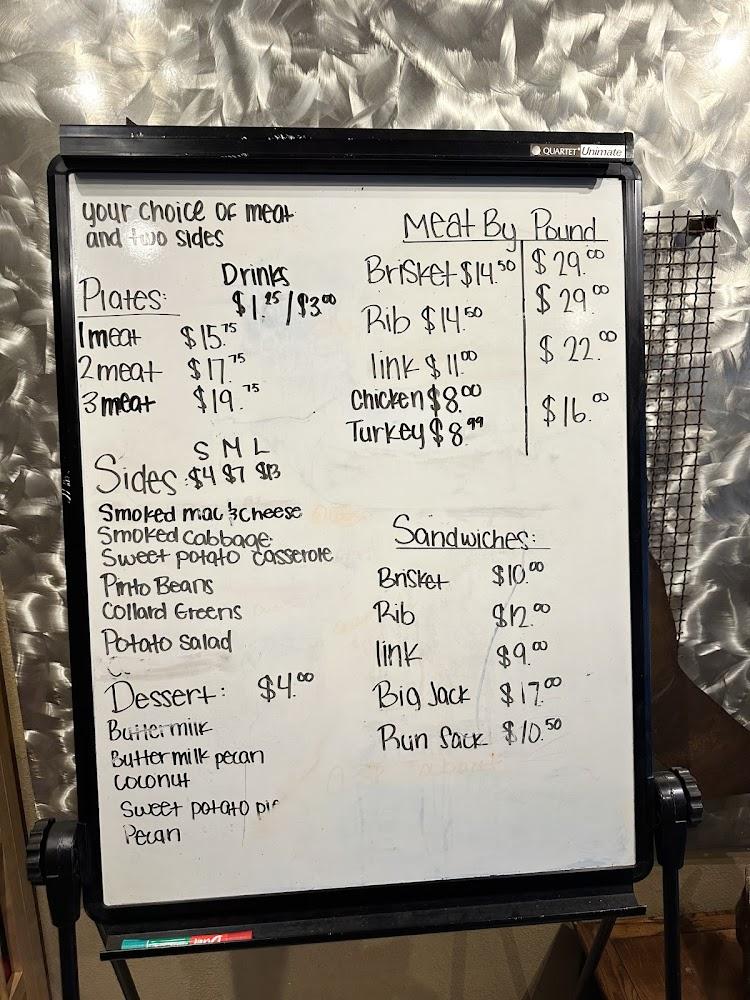 QUARTET Unimate
your choice of meat
and two sides
Drinks
$1.25/$3.00
Plates:
1 meat $15.75
2 meat $17.75
3 meat $19.75
S M L
Sides: $4 $7 $13
Smoked mac & cheese
Smoked cabbage
Sweet potato casserole
Pinto Beans
Collard Greens
Potato salad
Dessert: $4.00
Buttermilk
Buttermilk pecan
Coconut
Sweet potato pie
Pecan
Meat By Pound
Brisket $14.50 $29.00
Rib $14.50 $29.00
link $11.00 $22.00
Chicken $8.00 $16.00
Turkey $8.99
Sandwiches:
Brisket $10.00
Rib $12.00
link $9.00
Big Jack $17.00
Run Sack $10.50